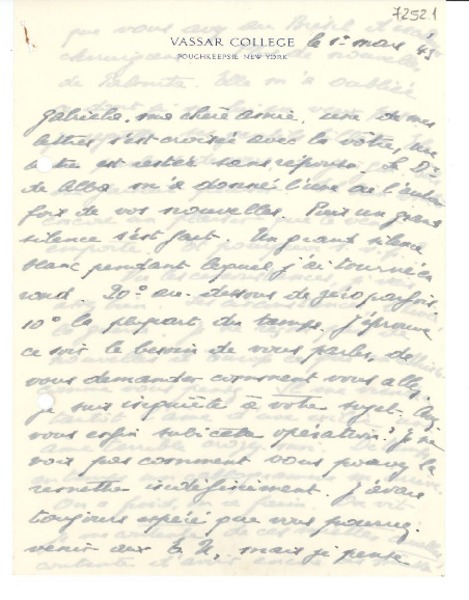 72521
VASSAR COLLEGE
POUGHKEEPSIE, NEW YORK
le 1er mars 45
Gabriela, ma chère amie, une de mes
lettres s'est croisée avec la vôtre, une
autre est restée sans réponse. Le Dr
de Alba m'a donné l'une ou l'autre
fois de vos nouvelles. Puis un grand
silence s'est fait. Un grand silence
blanc pendant lequel j'ai tourné en
rond. 20° au-dessous de zéro parfois,
10° la plupart du temps. J'éprouve
ce soir le besoin de vous parler, de
vous demander comment vous allez.
Je suis inquiète à votre sujet. Avez
vous enfin subi cette opération? Je ne
vois pas comment vous pouvez la
remettre indéfiniment. J'avais
toujours espéré que vous pourriez
venir aux E. U., mais je pense